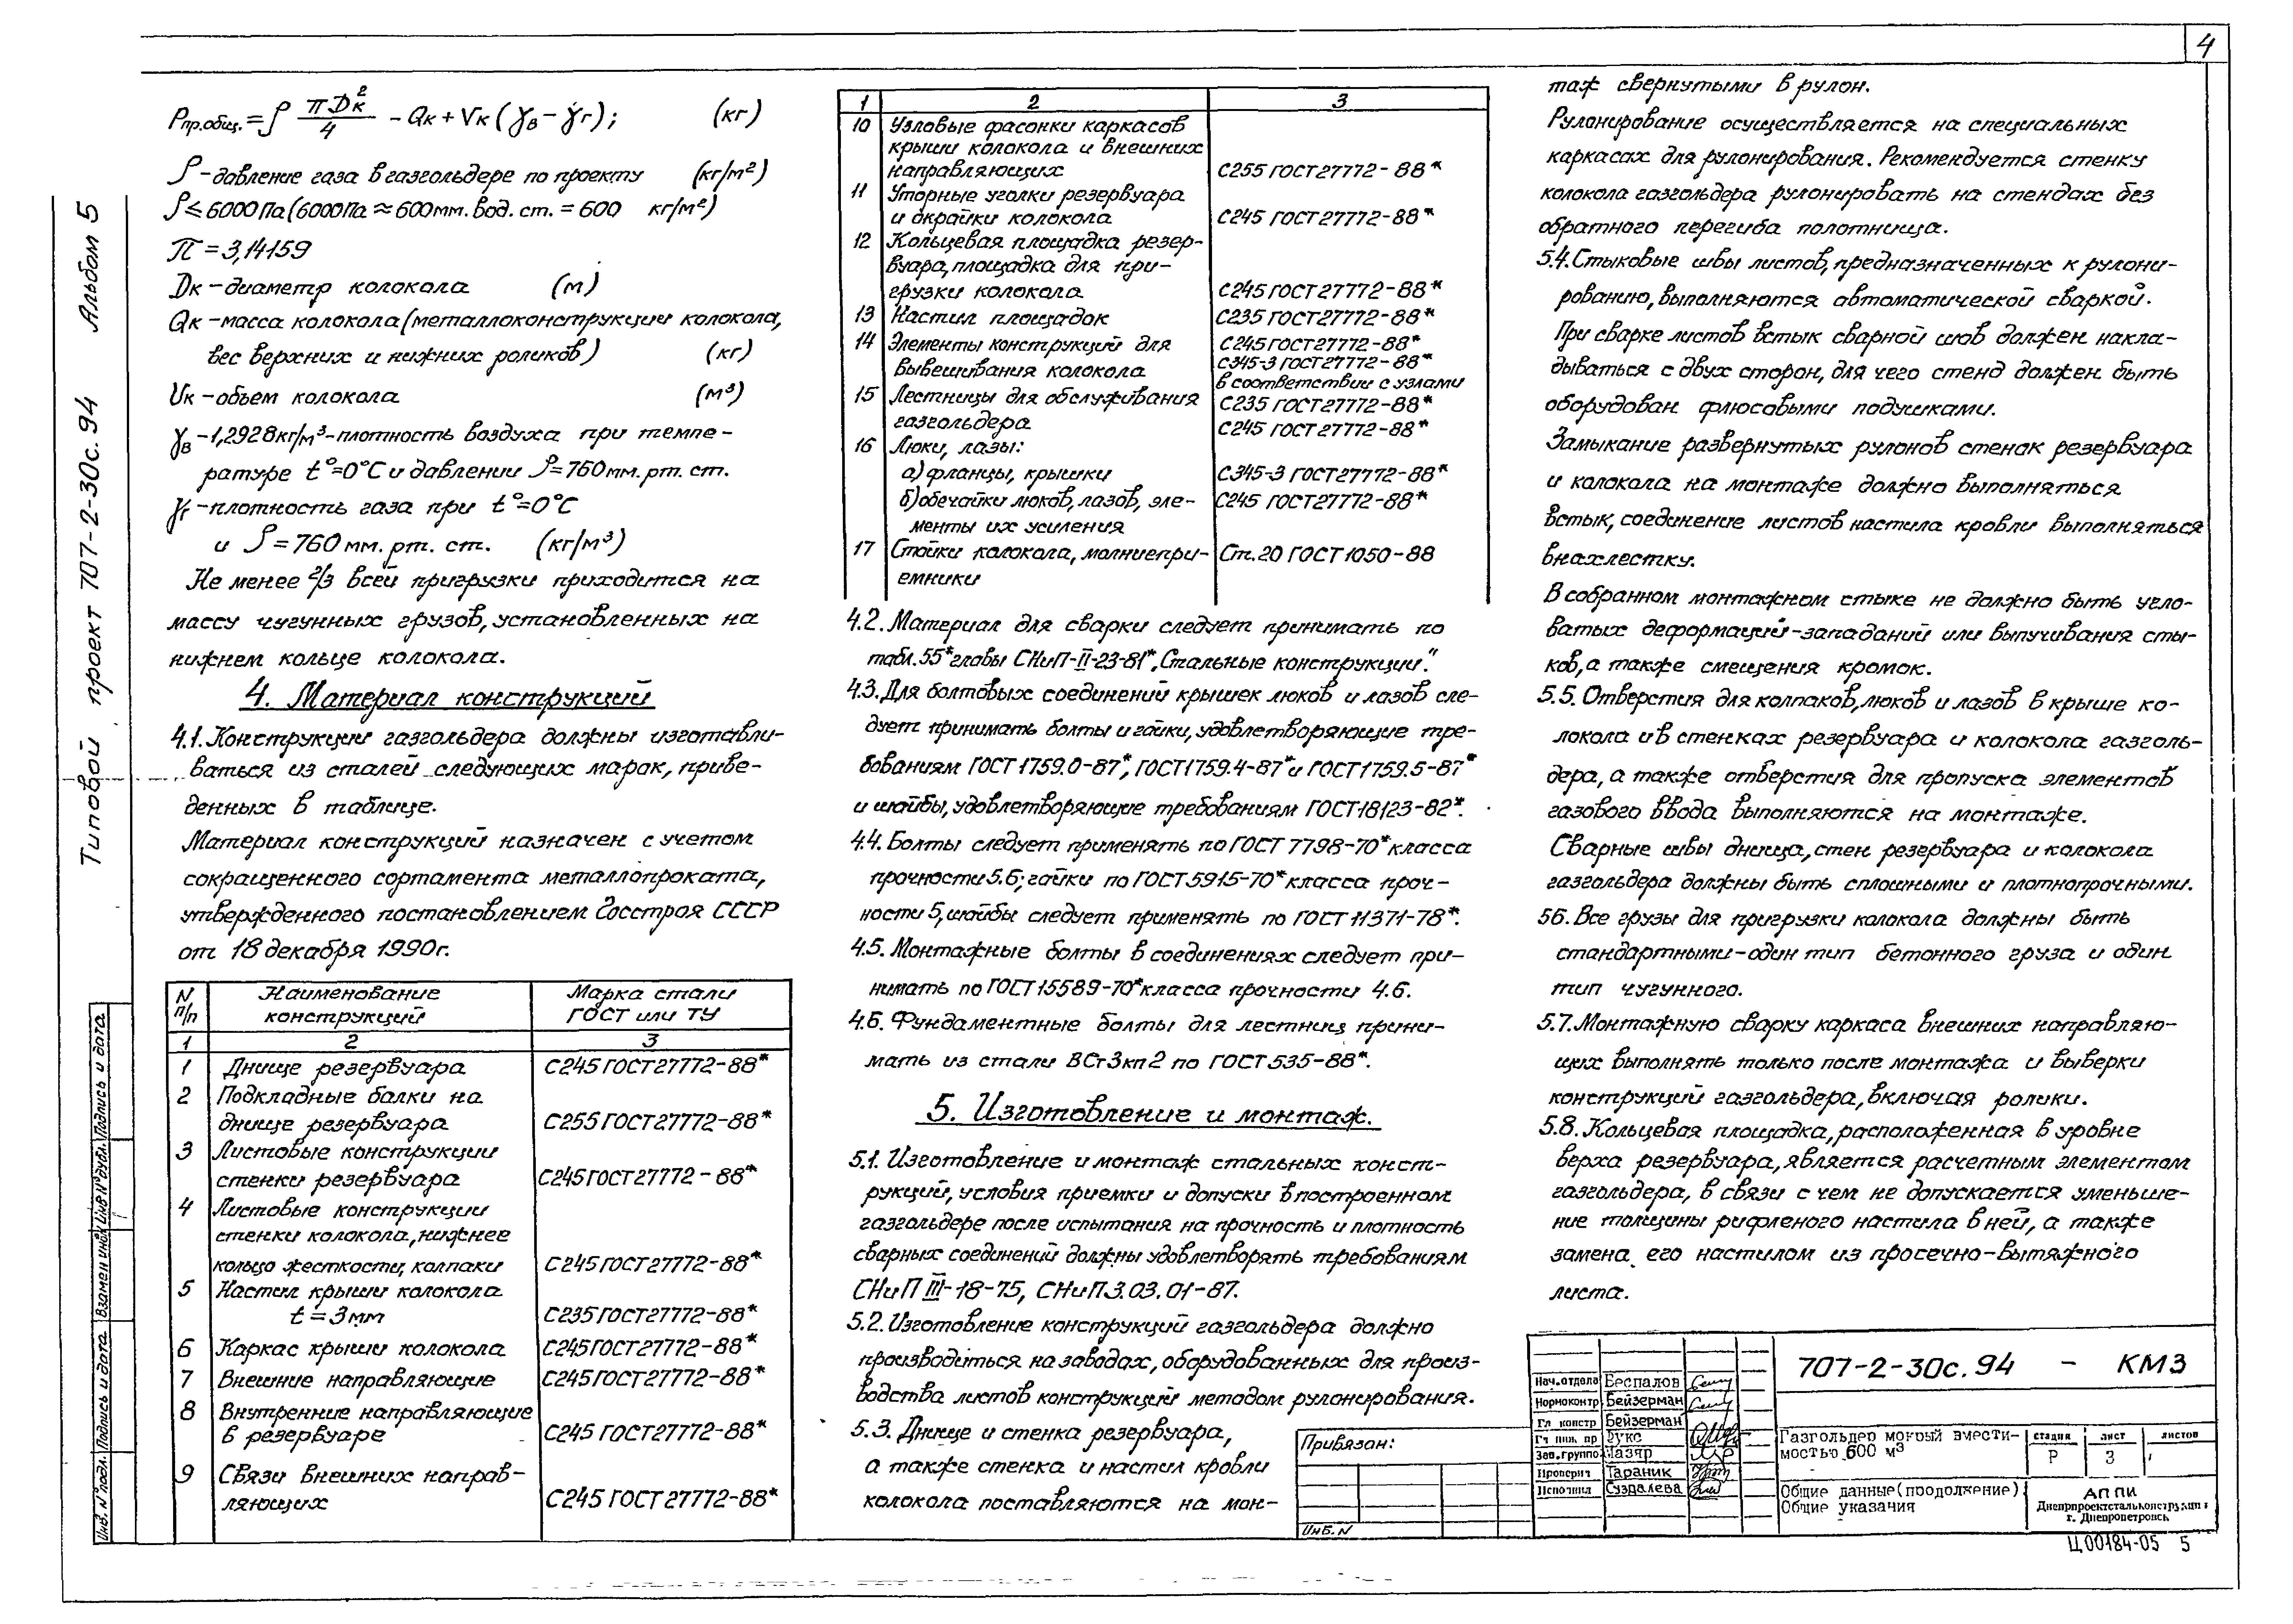 4
Типовой проект 707-2-30с.94 Альбом 5
Pпр.общ. = ρ πDк²/4 - Qк + Vк (γв - γг); (кг)
ρ - давление газа в газгольдере по проекту (кг/м²)
ρ ≤ 6000 Па (6000 Па ≈ 600 мм. вод. ст. = 600 кг/м²)
π = 3,14159
Dк - диаметр колокола (м)
Qк - масса колокола (металлоконструкции колокола,
вес верхних и нижних роликов) (кг)
Vк - объем колокола (м³)
γв - 1,2928 кг/м³ - плотность воздуха при темпе-
ратуре t°=0°С и давлении ρ=760 мм. рт. ст.
γг - плотность газа при t°=0°С
и ρ = 760 мм. рт. ст. (кг/м³)
Не менее 2/3 всей пригрузки приходится на
массу чугунных грузов, установленных на
нижнем кольце колокола.
4. Материал конструкций
4.1. Конструкции газгольдера должны изготавли-
ваться из сталей следующих марок, приве-
денных в таблице.
Материал конструкций назначен с учетом
сокращенного сортамента металлопроката,
утвержденного постановлением Госстроя СССР
от 18 декабря 1990г.
N п/п Наименование конструкций Марка стали ГОСТ или ТУ
1 2 3
1 Днище резервуара С245 ГОСТ 27772-88*
2 Подкладные балки на
днище резервуара С255 ГОСТ 27772-88*
3 Листовые конструкции
стенки резервуара С245 ГОСТ 27772-88*
4 Листовые конструкции
стенки колокола, нижнее
кольцо жесткости, колпаки С245 ГОСТ 27772-88*
5 Настил крыши колокола
t = 3 мм С235 ГОСТ 27772-88*
6 Каркас крыши колокола С245 ГОСТ 27772-88*
7 Внешние направляющие С245 ГОСТ 27772-88*
8 Внутренние направляющие
в резервуаре С245 ГОСТ 27772-88*
9 Связи внешних направ-
ляющих С245 ГОСТ 27772-88*
1 2 3
10 Узловые фасонки каркасов
крыши колокола и внешних
направляющих С255 ГОСТ 27772-88*
11 Упорные уголки резервуара
и окрайки колокола С245 ГОСТ 27772-88*
12 Кольцевая площадка резер-
вуара, площадка для при-
грузки колокола С245 ГОСТ 27772-88*
13 Настил площадок С235 ГОСТ 27772-88*
14 Элементы конструкций для С245 ГОСТ 27772-88*
вывешивания колокола С345-3 ГОСТ 27772-88*
в соответствии с узлами
15 Лестницы для обслуживания С235 ГОСТ 27772-88*
газгольдера С245 ГОСТ 27772-88*
16 Люки, лазы:
а) фланцы, крышки С345-3 ГОСТ 27772-88*
б) обечайки люков, лазов, эле- С245 ГОСТ 27772-88*
менты их усиления
17 Стойки колокола, молниепри- Ст.20 ГОСТ 1050-88
емники
4.2. Материал для сварки следует принимать по
табл. 55* главы СНиП-II-23-81* „Стальные конструкции."
4.3. Для болтовых соединений крышек люков и лазов сле-
дует принимать болты и гайки, удовлетворяющие тре-
бованиям ГОСТ 1759.0-87*, ГОСТ 1759.4-87* и ГОСТ 1759.5-87*
и шайбы, удовлетворяющие требованиям ГОСТ 18123-82*.
4.4. Болты следует применять по ГОСТ 7798-70* класса
прочности 5.6; гайки по ГОСТ 5915-70* класса проч-
ности 5, шайбы следует применять по ГОСТ 11371-78*.
4.5. Монтажные болты в соединениях следует при-
нимать по ГОСТ 15589-70* класса прочности 4.6.
4.6. Фундаментные болты для лестниц прини-
мать из стали ВСт3кп2 по ГОСТ 535-88*.
5. Изготовление и монтаж.
5.1. Изготовление и монтаж стальных конст-
рукций, условия приемки и допуски в построенном
газгольдере после испытания на прочность и плотность
сварных соединений должны удовлетворять требованиям
СНиП III-18-75, СНиП 3.03.01-87.
5.2. Изготовление конструкций газгольдера должно
производиться на заводах, оборудованных для произ-
водства листов конструкций методом рулонирования.
5.3. Днище и стенка резервуара,
а также стенка и настил кровли
колокола поставляются на мон-
таж свернутыми в рулон.
Рулонирование осуществляется на специальных
каркасах для рулонирования. Рекомендуется стенку
колокола газгольдера рулонировать на стендах без
обратного перегиба полотнища.
5.4. Стыковые швы листов, предназначенных к рулони-
рованию, выполняются автоматической сваркой.
При сварке листов встык сварной шов должен накла-
дываться с двух сторон, для чего стенд должен быть
оборудован флюсовыми подушками.
Замыкание развернутых рулонов стенок резервуара
и колокола на монтаже должно выполняться
встык, соединение листов настила кровли выполняться
внахлестку.
В собранном монтажном стыке не должно быть угло-
ватых деформаций-западаний или выпучивания сты-
ков, а также смещения кромок.
5.5. Отверстия для колпаков, люков и лазов в крыше ко-
локола и в стенках резервуара и колокола газголь-
дера, а также отверстия для пропуска элементов
газового ввода выполняются на монтаже.
Сварные швы днища, стен резервуара и колокола
газгольдера должны быть сплошными и плотнопрочными.
5.6. Все грузы для пригрузки колокола должны быть
стандартными - один тип бетонного груза и один
тип чугунного.
5.7. Монтажную сварку каркаса внешних направляю-
щих выполнять только после монтажа и выверки
конструкций газгольдера, включая ролики.
5.8. Кольцевая площадка, расположенная в уровне
верха резервуара, является расчетным элементом
газгольдера, в связи с чем не допускается уменьше-
ние толщины рифленого настила в ней, а также
замена его настилом из просечно-вытяжного
листа.
Привязан:
Инв. N
Нач.отдела Беспалов
Нормоконтр Бейзерман
Гл констр Бейзерман
Гл инж пр Зукс
Зав.группо Назяр
Проверил Тараник
Исполнил Суздалева
707-2-30с.94 - КМ3
Газгольдер мокрый вмести-
мостью 600 м³
стадия лист листов
Р 3
Общие данные (продолжение)
Общие указания
АП ПИ
Днепрпроектстальконструкция
г. Днепропетровск
Ц00184-05 5
Инв. N° подл. Подпись и дата Взамен инв. Инв N° дубл. Подпись и дата